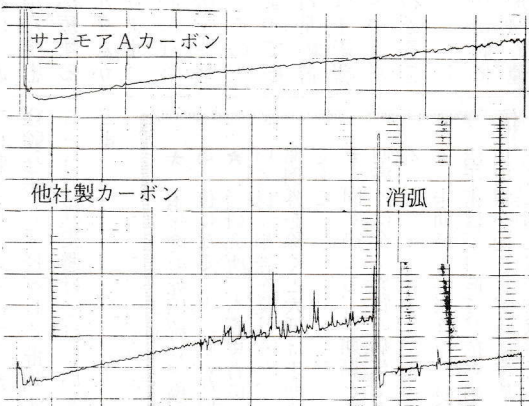 サナモアAカーボン
他社製カーボン
消弧